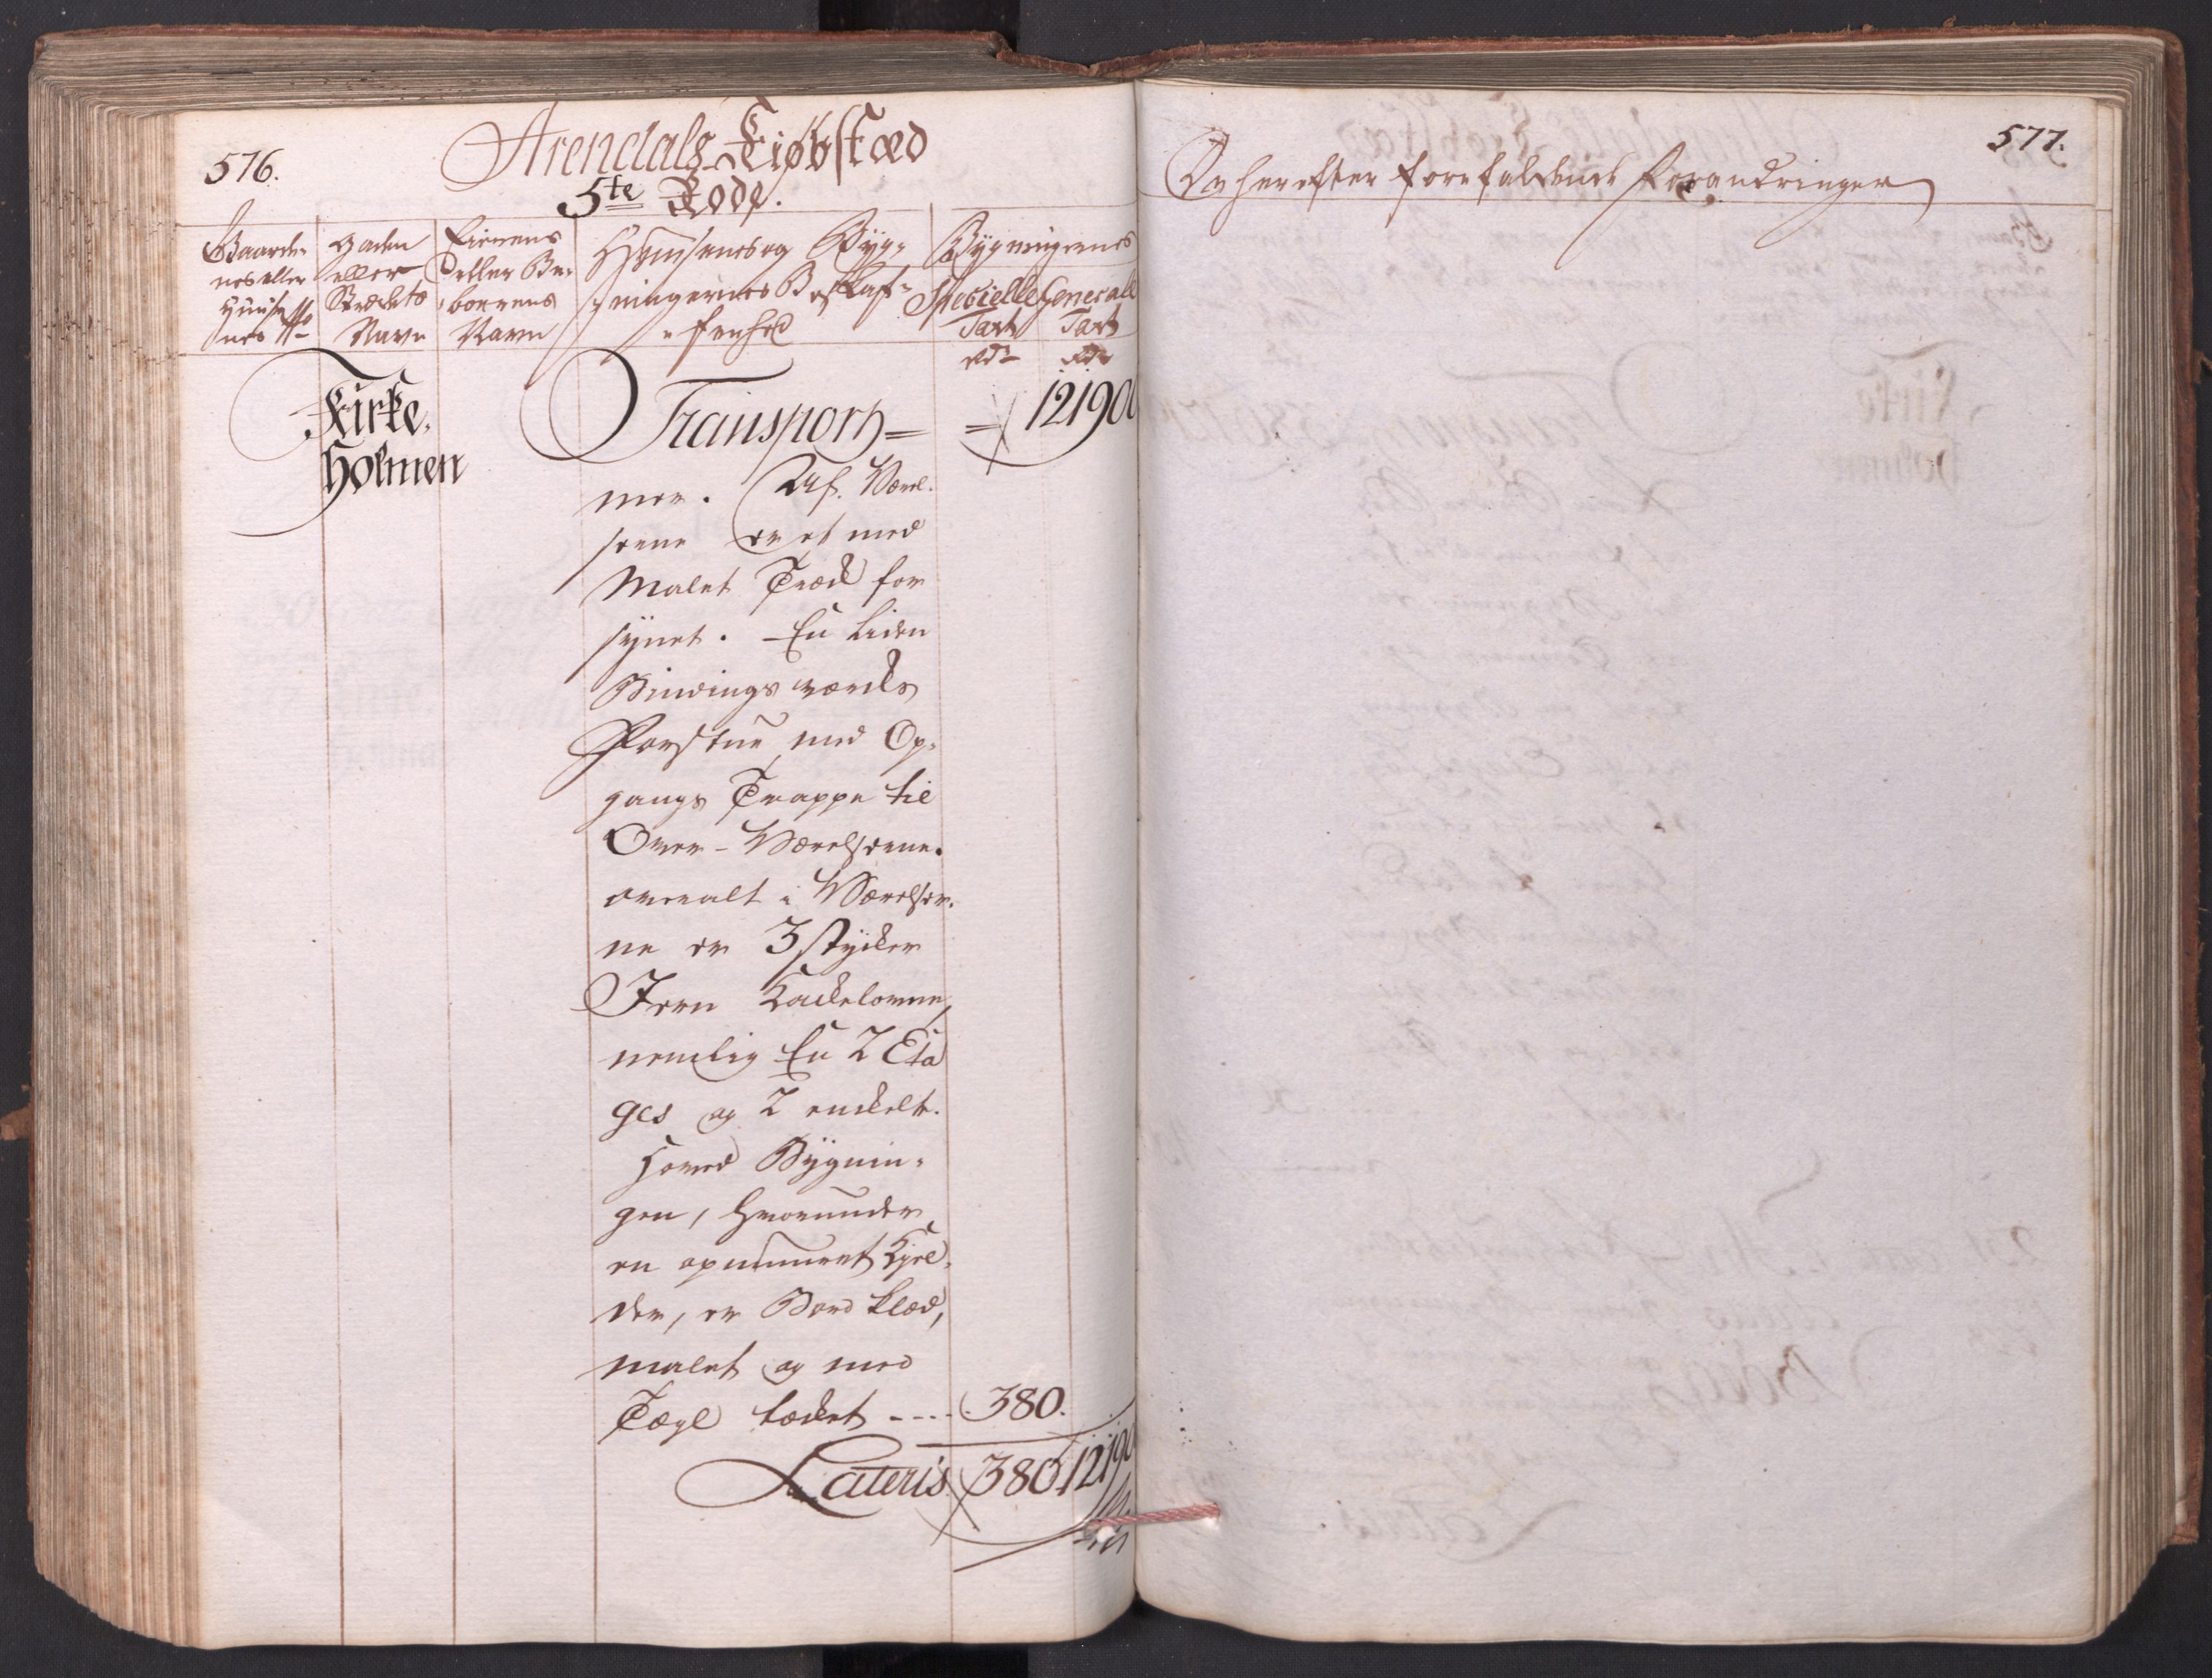 576.
Arendals Kiøbstæd
5te Rode.
Gaarde-
nes eller
Huuse-
nes No
Gaden
eller
Strædets
Navn
Eierens
eller Be-
boerens
Navn
Huusenes og Byg-
ningernes Beskaf-
fenhed
Bygningernes
Specielle
Taxt
Rdr
Generale
Taxt
Rdr
Kirke-
Holmen
Transport = = 121900
mer. Af Værel-
serne er et med
Malet Træck for
synet. En liden
Bindingsværcks
Forstue med Op-
gangs Trappe til
Over-Værelserne.
overalt i Værelser-
ne er 3 stycker
Jern Kackelovne,
nemlig En 2 Eta
ges og 2 enckelte.
Hoved Bygnin-
gen, hvorunder
en opmuuret Kjel-
der, er Bord klæd,
malet og med
Tegl tæcket ---- 380.
Lateris 380 12190
577.
De herefter forefaldende Forandringer